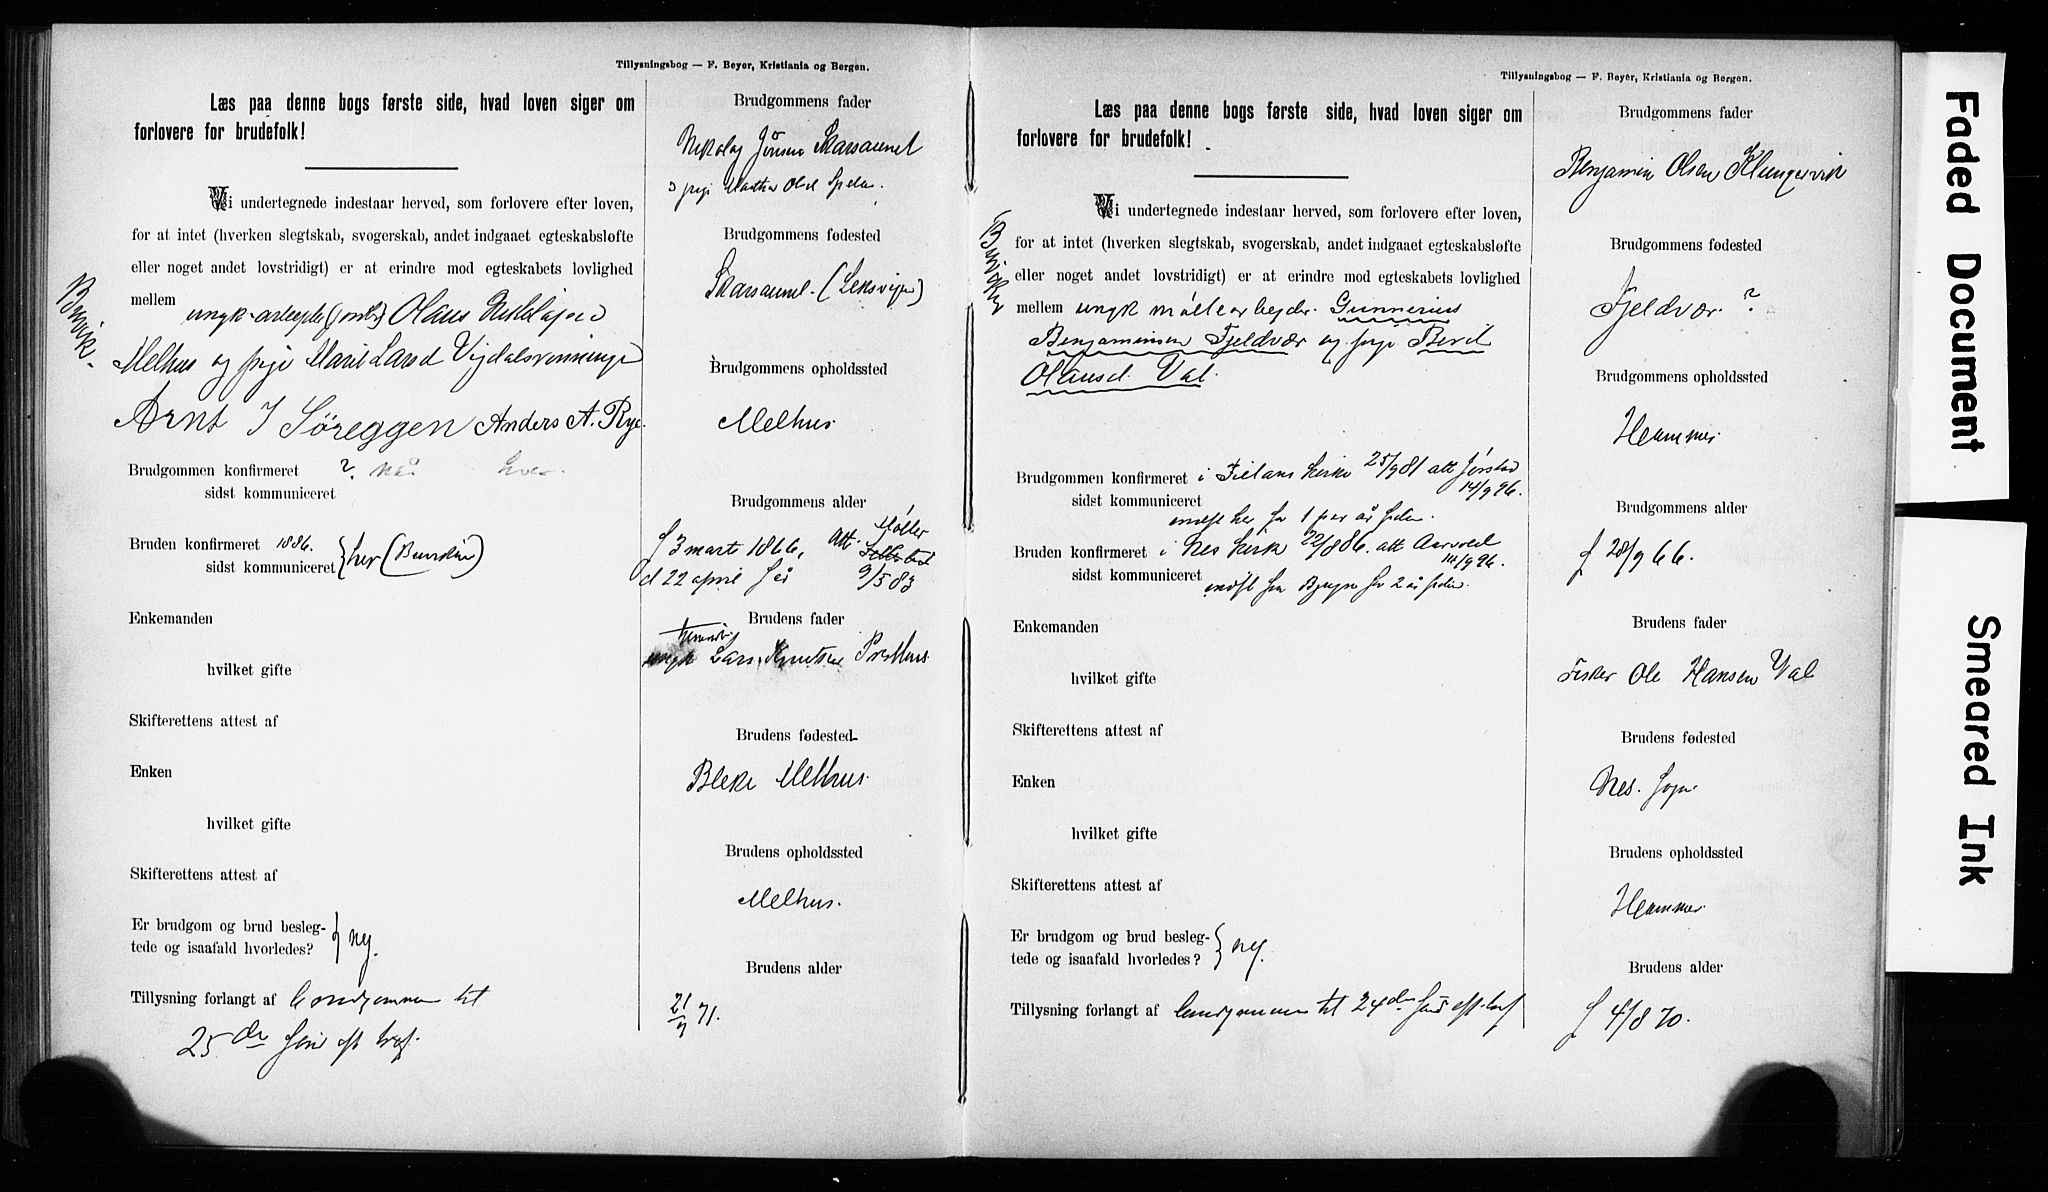 Tillysningsbog — F. Beyer, Kristiania og Bergen.
Læs paa denne bogs første side, hvad loven siger om
forlovere for brudefolk!
Vi undertegnede indestaar herved, som forlovere efter loven,
for at intet (hverken slegtskab, svogerskab, andet indgaaet egteskabsløfte
eller noget andet lovstridigt) er at erindre mod egteskabets lovlighed
mellem ungk. Olaus
Melhus og pige Marit Larsd
Arnt J Söreggen Anders A. Rye.
Brudgommen konfirmeret ?
sidst kommuniceret
Bruden konfirmeret 1886. } her
sidst kommuniceret
Enkemanden
hvilket gifte
Skifterettens attest af
Enken
hvilket gifte
Skifterettens attest af
Er brudgom og brud besleg-
tede og isaafald hvorledes? } nej.
Tillysning forlangt af brudgommen til
25de
Brudgommens fader
Skarsaunet
Brudgommens fødested
Skarsaunet (Leksvigen)
Brudgommens opholdssted
Melhus.
Brudgommens alder
f 3 marts 1866, att. Møller
d 22 april s. å. 9/5 83
Brudens fader
ungk Lars Knutsen Presthus
Brudens fødested
Bleke Melhus.
Brudens opholdssted
Melhus.
Brudens alder
21/9 71.
Tillysningsbog — F. Beyer, Kristiania og Bergen.
Læs paa denne bogs første side, hvad loven siger om
forlovere for brudefolk!
Vi undertegnede indestaar herved, som forlovere efter loven,
for at intet (hverken slegtskab, svogerskab, andet indgaaet egteskabsløfte
eller noget andet lovstridigt) er at erindre mod egteskabets lovlighed
mellem ungk møllearbejder Gunnerius
Benjaminsen Fjeldvær og pige Berit
Olausd. Val.
Brudgommen konfirmeret i kirke 25/9 81 att Jørstad
14/9 96.
sidst kommuniceret
her for 1 par år siden.
Bruden konfirmeret i Nes kirke 22/8 86. att
sidst kommuniceret
for 2 år siden.
Enkemanden
hvilket gifte
Skifterettens attest af
Enken
hvilket gifte
Skifterettens attest af
Er brudgom og brud besleg-
tede og isaafald hvorledes? } nej.
Tillysning forlangt af brudgommen til 24de
Brudgommens fader
Benjamin Olsen Klungervik
Brudgommens fødested
Fjeldvær ?
Brudgommens opholdssted
Hammer
Brudgommens alder
f 28/9 66.
Brudens fader
Fisker Ole Hansen Val
Brudens fødested
Nes. Sogn
Brudens opholdssted
Hammer
Brudens alder
f 4/8 70.
Faded Document
Smeared Ink